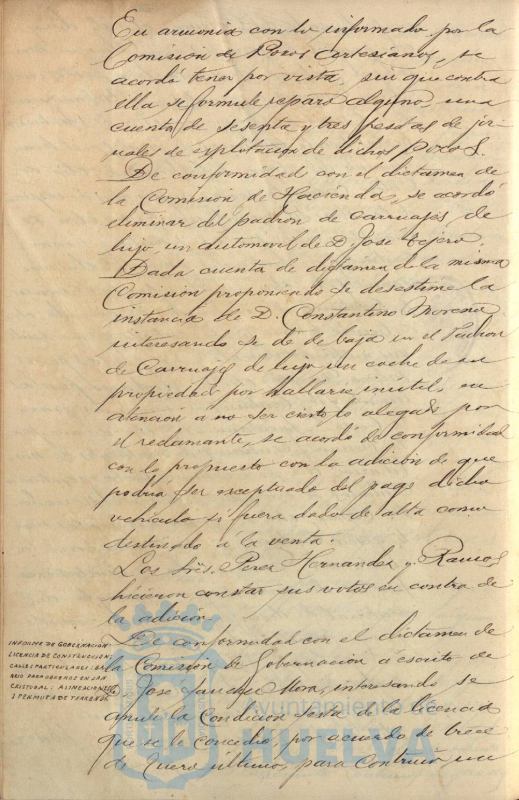 En armonia con lo informado por la
Comisión de Pozos Artesianos, se
acordó tener por vista, sin que contra
ella se formule reparo alguno, una
cuenta de sesenta y tres pesetas de jor-
nales de explotacion de dichos pozos.
De conformidad con el dictamen de
la Comision de Hacienda, se acordó
eliminar del padron de carruajes de
lujo, un automovil de D. José Tejero.
Dada cuenta de dictamen de la misma
Comision proponiendo se desestime la
instancia de D. Constantino Morena
interesando se dé de baja en el Padron
de Carruajes de lujo un coche de su
propiedad por hallarse inútil, en
atención á no ser cierto lo alegado por
el reclamante, se acordó de conformidad
con lo propuesto con la adición de que
podria ser exceptuado del pago dicho
vehículo si fuera dado de alta como
destinado a la venta.
Los Sres. Perez Hernandez y Ramos
hicieron constar sus votos en contra de
la adición.
De conformidad con el dictamen de
la Comision de Gobernacion á escrito de
José Sanchez Mora, interesando se
anule la condición sexta de la licencia
que se le concedió, por acuerdo de trece
de Enero último, para construir un
INFORME DE GOBERNACION:
LICENCIA DE CONSTRUCCION
CALLES PARTICULARES: BA-
RRIO PARA OBREROS EN SAN
CRISTOBAL: ALINEACIONES
Y PERMUTA DE TERRENOS
Ayuntamiento de
HUELVA